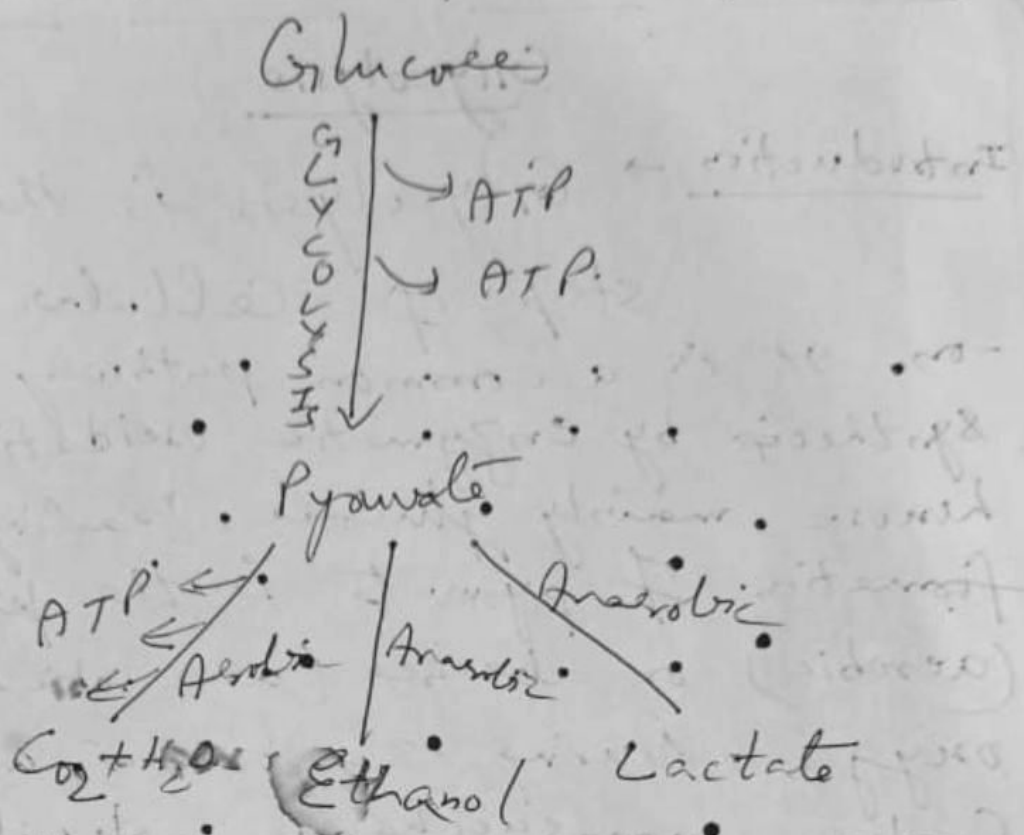 Glucose
GLYCOLYSIS
ATP
ATP.
Pyruvate
ATP
Aerobic
Anaerobic
Anaerobic
CO2 + H2O
Ethanol
Lactate